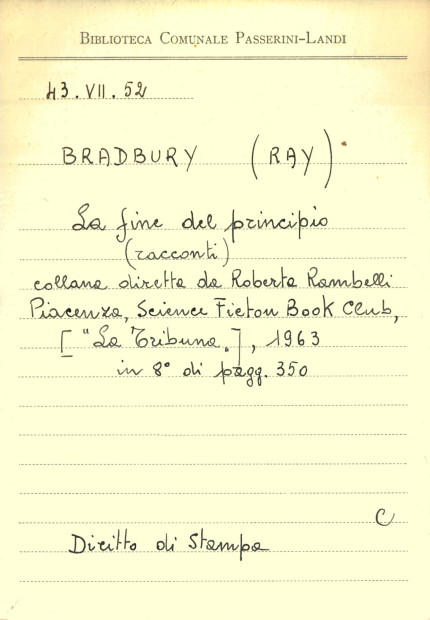 BIBLIOTECA COMUNALE PASSERINI-LANDI
43.VII.52
BRADBURY (RAY)
La fine del principio
(racconti)
collana diretta da Roberta Rambelli
Piacenza, Science Ficton Book Club,
[ "La Tribuna" ], 1963
in 8° di pagg. 350
C
Diritto di Stampa